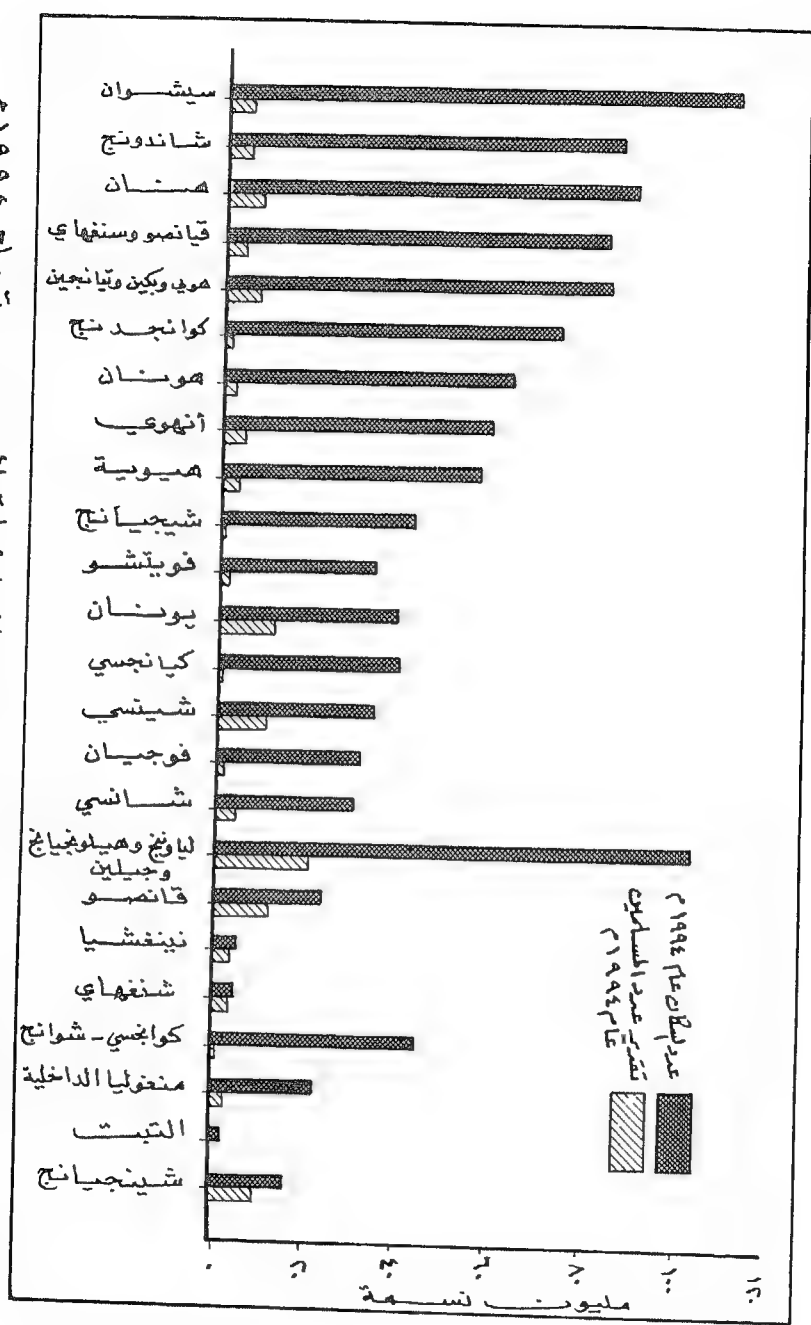 سيشوان
شاندونج
هنان
قيانصو وسنغهاي
هوبي وبكين وتيانجين
كوانجدنج
هونان
أنهوي
هيوبية
شيجيانج
فويتشو
يونان
كيانجسي
شينسي
فوجيان
شانسي
لياوننج وهيلونجيانج
وجيلين
قانصو
نينغشيا
شنغهاي
كوانجسي - شوانج
منغوليا الداخلية
التبت
شينجيانج
عدد السكان عام ١٩٩٤م
تقدير عدد المسلمين
عام ١٩٩٤م
٠
٢٠
٤٠
١٠٠
١٢٠
مليون نسمة